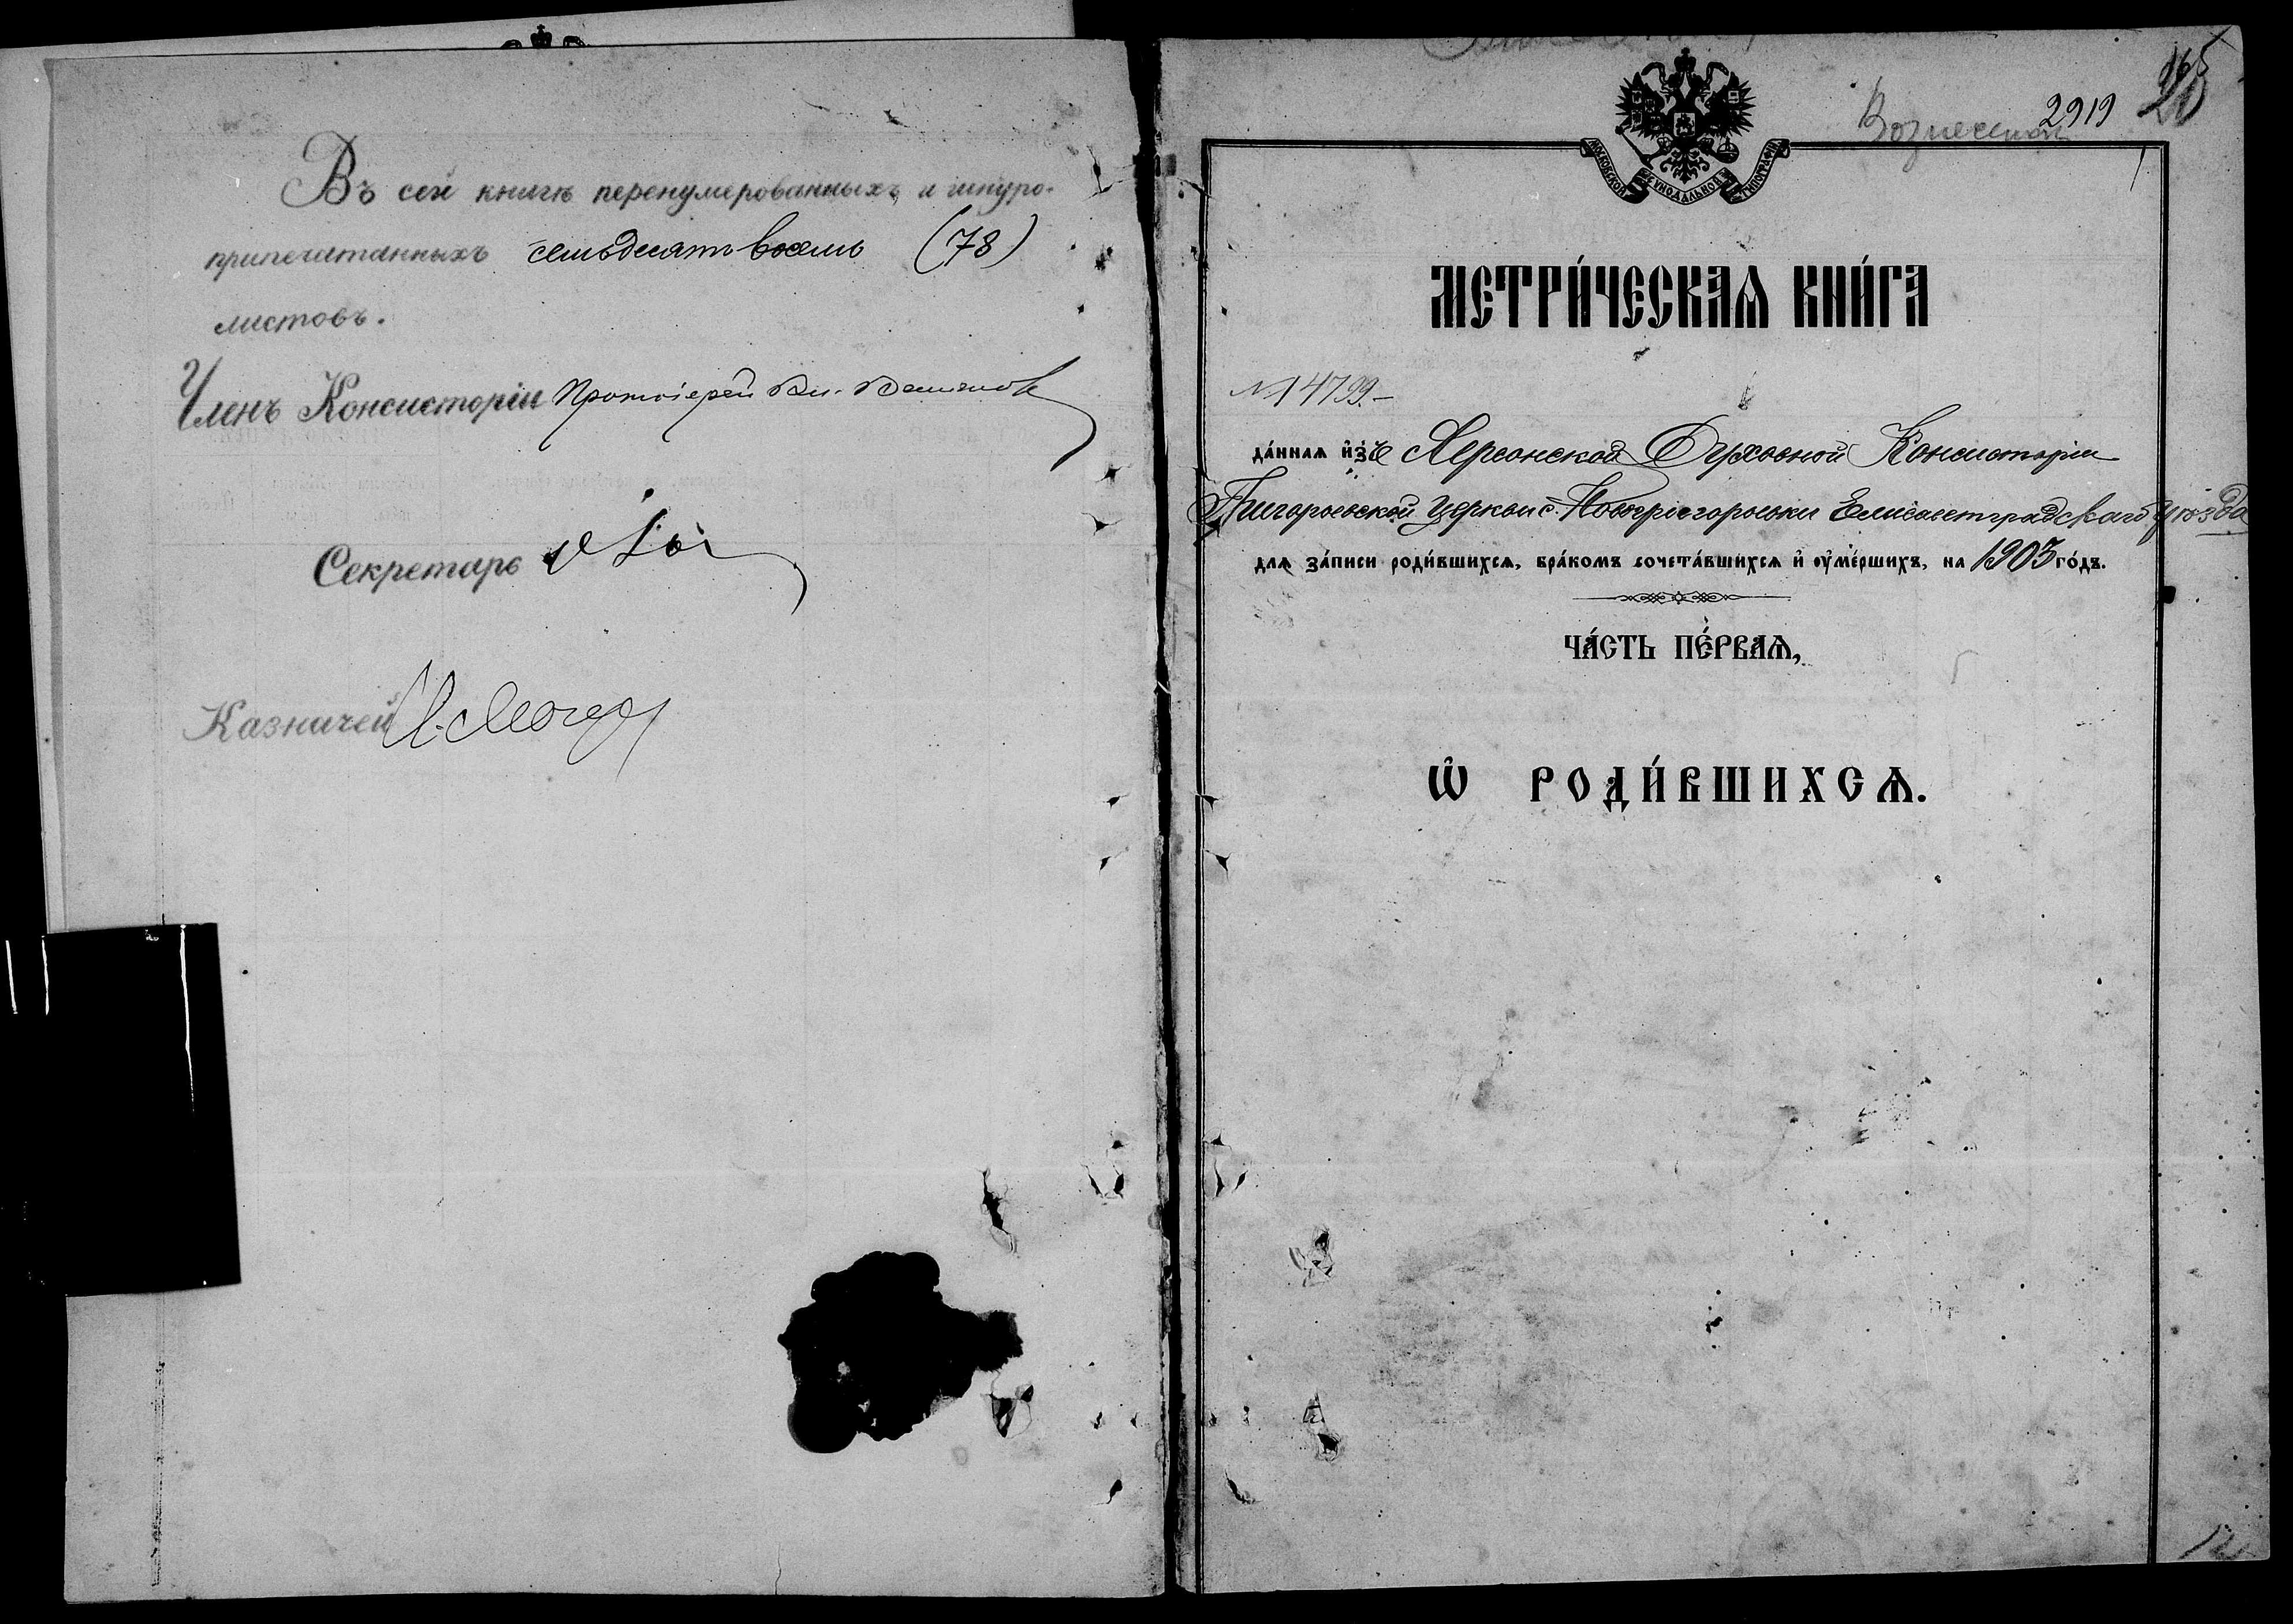 Въ сей книгѣ перенумерованныхъ и шнуро-
припечатанныхъ семьдесятъ восемь (78)
листовъ.
Членъ Консисторіи Протоіерей
Секретарь
Казначей
2919
Вознесенск
МОСКОВСКОЙ СѴНОДАЛЬНОЙ ТИПОГРАФІИ
МЕТРИ́ЧЕСКАѦ КНИ́ГА
№ 14799.-
да́ннаѧ и҆зъ Херсонской Духовной Консисторіи
церкви с. Новогригорьевки Елисаветградскаго уѣзда
длѧ за́писи роди́вшихсѧ, бра́комъ сочета́вшихсѧ и҆ ᲂу҆ме́ршихъ, на 1903 го́дъ.
ЧА́СТЬ ПЕ́РВАѦ,
Ѡ҆ РОДИ́ВШИХСѦ.